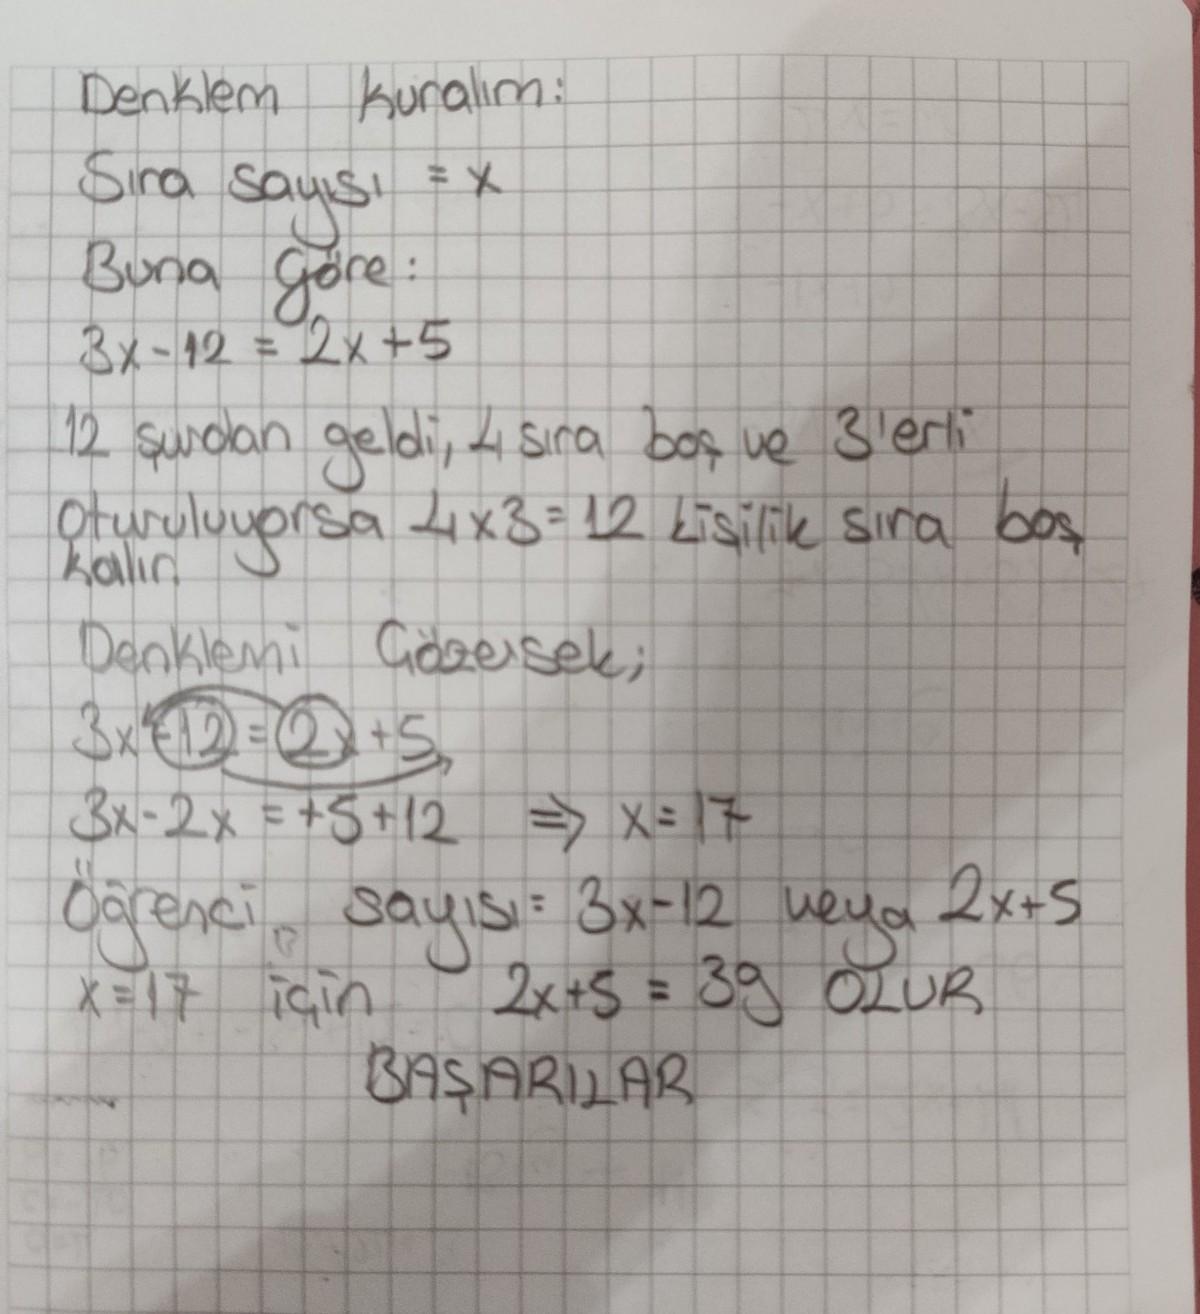 Denklem kuralım:
Sıra sayısı = x
Buna göre:
3x-12 = 2x+5
12 şurdan geldi, 4 sıra boş ve 3'erli
oturuluyorsa 4x3=12 kişilik sıra boş
kalır
Denklemi Çözersek;
3x-12=2x+5
3x-2x=+5+12 ⇒ x=17
Öğrenci sayısı= 3x-12 veya 2x+5
x=17 için 2x+5=39 OLUR
BAŞARILAR